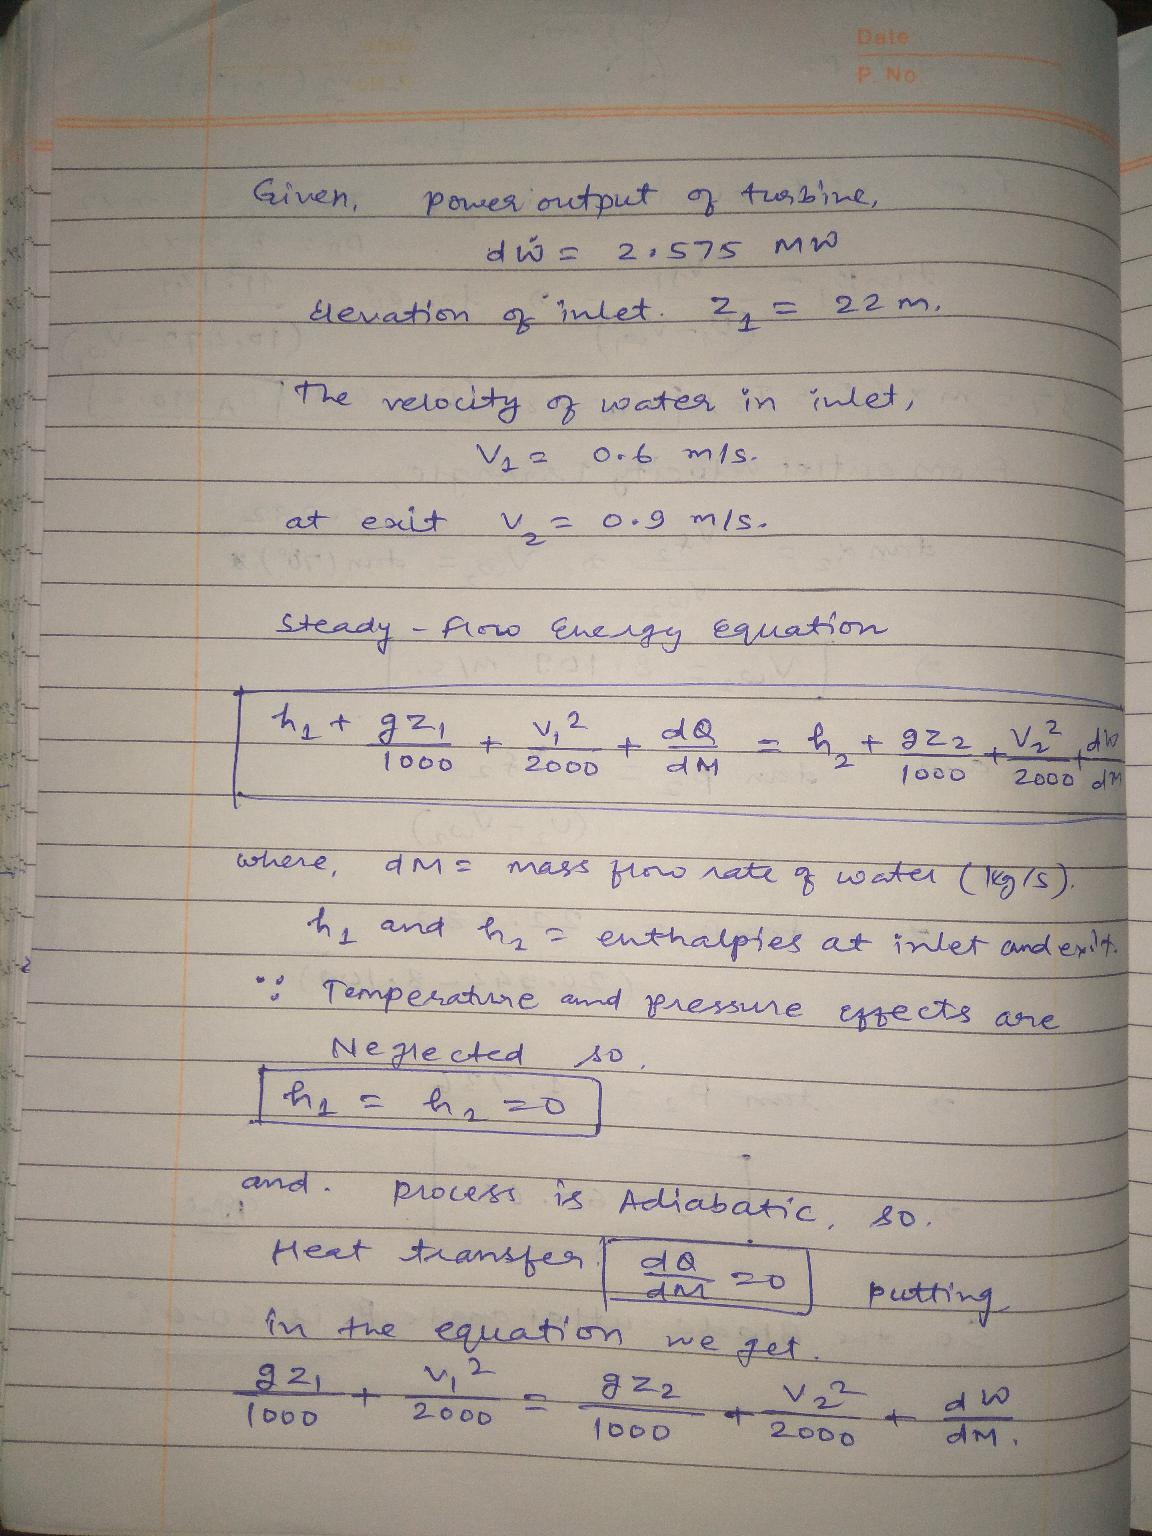 Date
P. No
Given, power output of turbine,
dẇ = 2.575 MW
Elevation of inlet. Z₁ = 22 m.
The velocity of water in inlet,
V₁ = 0.6 m/s.
at exit V₂ = 0.9 m/s.
Steady - flow Energy Equation
h₁ + gz₁/1000 + V₁²/2000 + dQ/dM = h₂ + gz₂/1000 + V₂²/2000 + dW/dM
where, dM = mass flow rate of water (kg/s).
h₁ and h₂ = enthalpies at inlet and exit.
∵ Temperature and pressure effects are
Neglected so,
h₁ = h₂ = 0
and. process is Adiabatic, so.
Heat transfer dQ/dM = 0 putting
in the equation we get.
gz₁/1000 + V₁²/2000 = gz₂/1000 + V₂²/2000 + dW/dM.